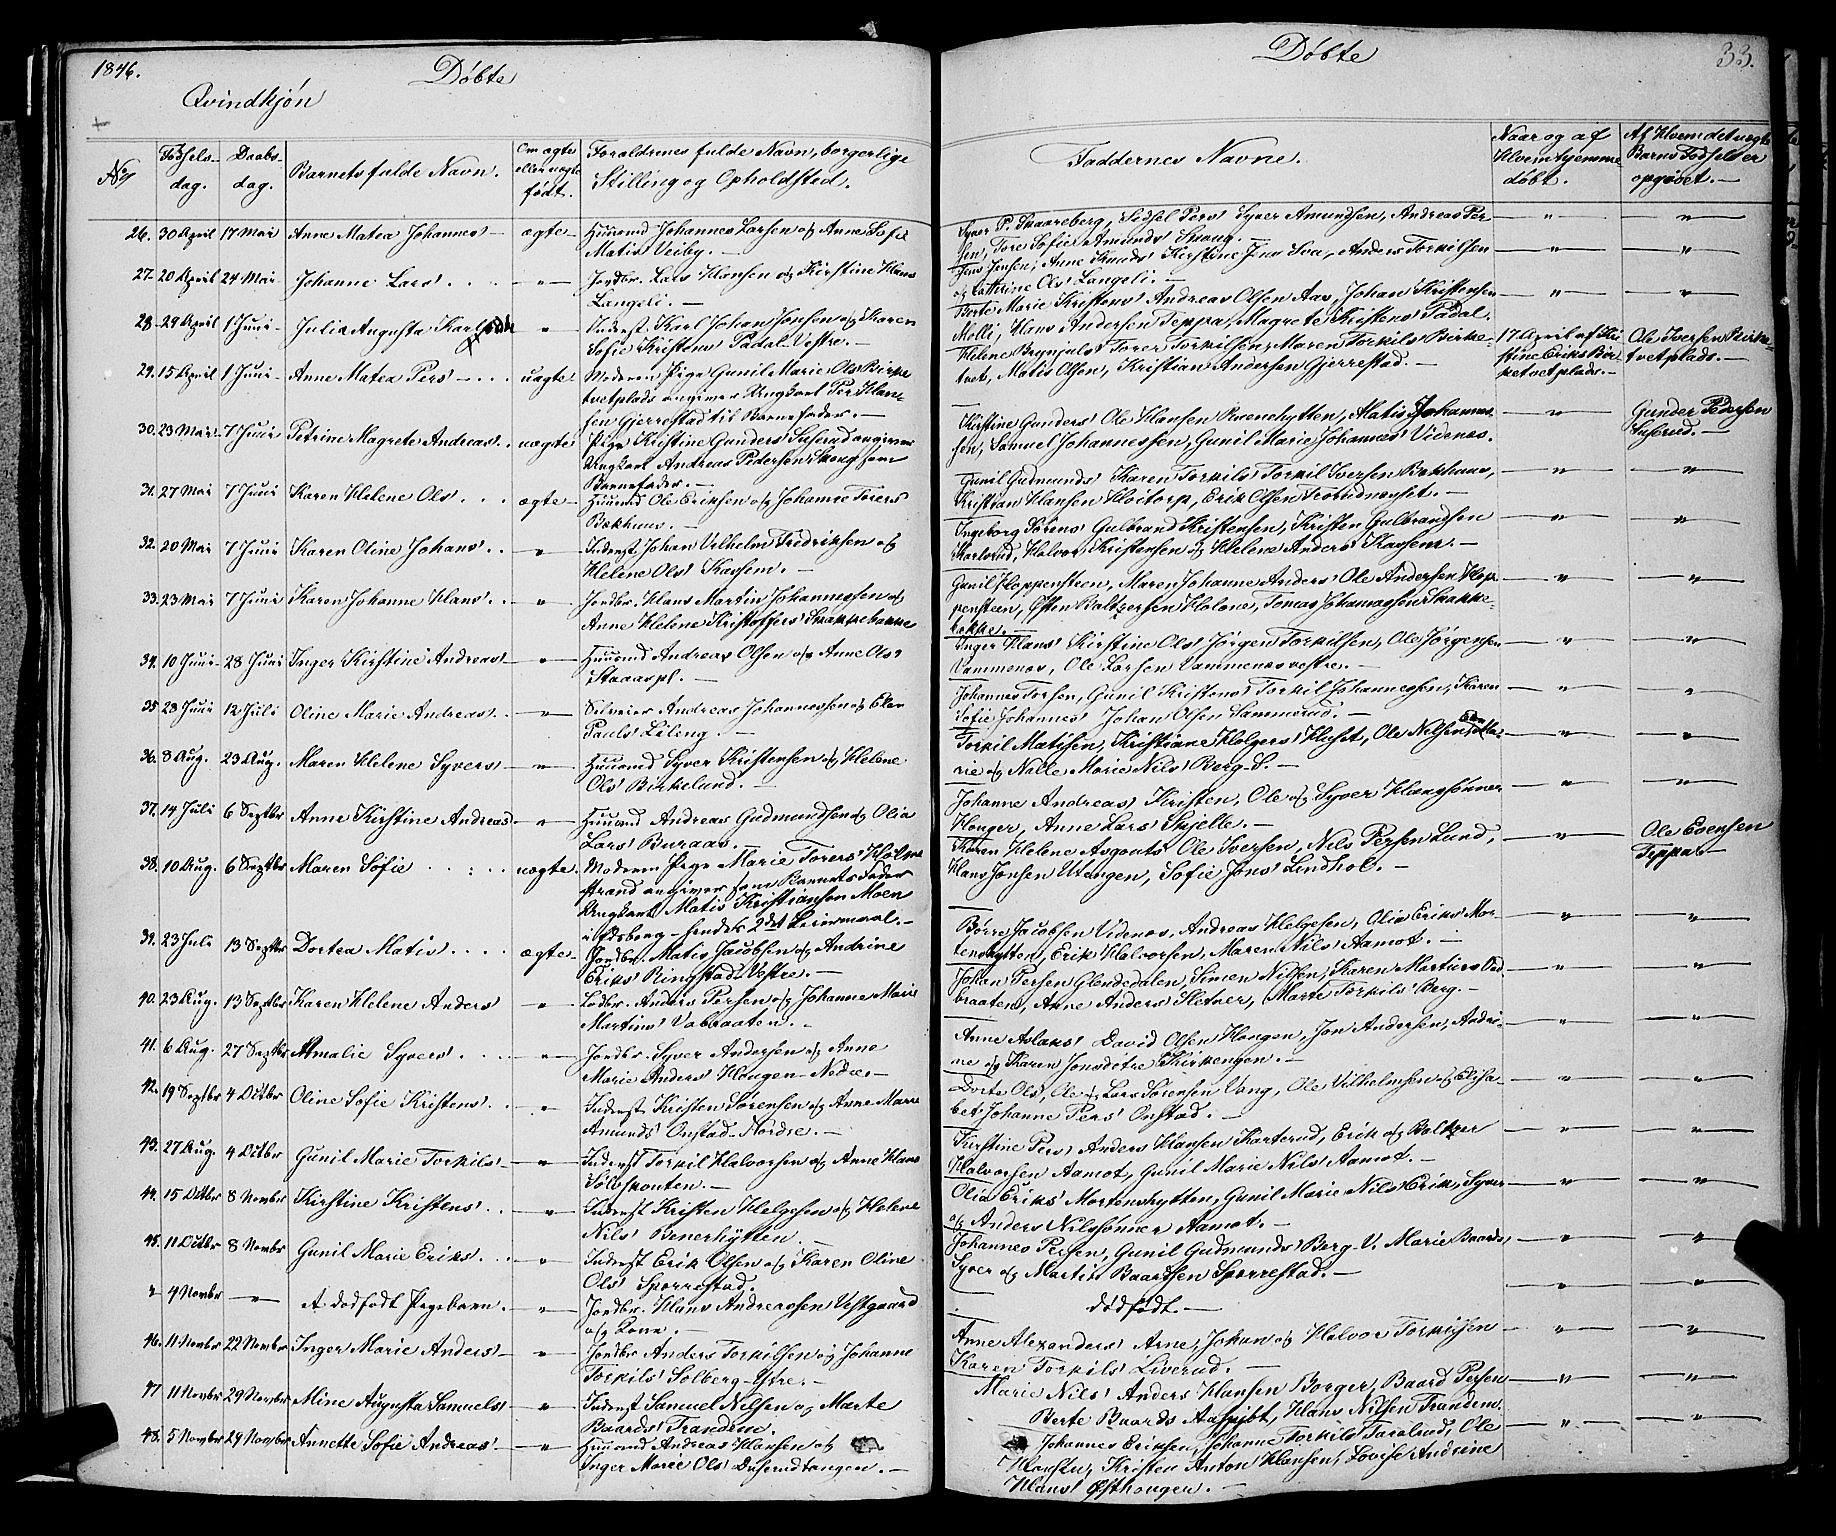 1846.
Døbte
Qvindkjøn
No
Fødsels-
dag.
Daabs-
dag.
Barnets fulde Navn.
Om ægte
eller uægte
født.
Forældrenes fulde Navn, borgerlige
Stilling og Opholdsted.
26. 30 April 17 Mai Anne Matea Johannes' ægte Huusmd Johannes Larsen og Anne Sofie
Matis' Veiby.
27. 20 April 24 Mai Johanne Lars' " Jordbr. Lars Hansen og Kirstine Hans'
Langeli.
28. 29 April 1 Juni Julia Augusta Karls " Inderst. Karl Johan Jonsen og Karen
Sofie Kristens' Padal Vestre.
29. 15 April 1 Juni Anne Matea Pers' uægte Moderen Pige Gunil Marie Ols' Birke
tvetplads angiver Ungkarl Per Han-
sen Gjerrestad til Barnefader.
30. 23 Mai 7 Juni Petrine Magrete Andreas' uægte Pige Kirstine Gunders' Suserud angiver
Ungkarl Andreas Pedersen Skoug som
Barnefader.
31. 27 Mai 7 Juni Karen Helene Ols' ægte Huusmd Ole Eriksen og Johanne Torers'
Bækhuus.
32. 20 Mai 7 Juni Karen Oline Johans' " Inderst Johan Vilhelm Fredriksen og
Helene Ols' Kassem.
33. 23 Mai 7 Juni Karen Johanne Hans' " Jordbr. Hans Martin Johannessen og
Anne Helene Kristoffers' Snakkebakke
34. 10 Juni 28 Juni Inger Kirstine Andreas' " Huusmd Andreas Olsen og Anne Ols'
Staaaspl.
35. 23 Juni 12 Juli Oline Marie Andreas' " Andreas Johannessen og Elen
Pauls' Lileng.
36. 8 Aug. 23 Aug. Maren Helene Syvers' " Huusmd Syver Kristensen og Helene
Ols' Birkelund.
37. 14 Juli 6 Septbr Anne Kirstine Andreas' " Huusmd Andreas Gudmundsen og Olia
Lars' Buraas.
38. 10 Aug. 6 Septbr Maren Sofie uægte Moderen Pige Marie Torers' Holm
strand angiver som Barnets Fader
Ungkarl Matis Kristiansen Moen
i Edsberg - hendes 2det Leiermaal.
39. 23 Juli 13 Septbr Dortea Matis' ægte Jordbr. Matis Jacobsen og Andrine
Eriks' Ringstad Vestre.
40. 23 Aug. 13 Septbr Karen Helene Anders' " Anders Persen og Johanne Marie
Martins' Vabraaten.
41. 6 Aug. 27 Septbr Amalie Syvers' " Jordbr. Syver Andersen og Anne
Marie Anders' Hougen Nedre.
42. 19 Septbr 4 Octbr Oline Sofie Kristens' " Inderst. Kristen Sørensen og Anne Marie
Amunds' Onstad Nordre.
43. 27 Aug. 4 Octbr Gunil Marie Torkils' " Inderst Torkil Halvorsen og Anne Hans'
Sølvskouten.
44. 15 Octbr 8 Novbr Kirstine Kristens' " Inderst Kristen Helgesen og Helene
Nils' Benerhytten.
45. 11 Octbr 8 Novbr Gunil Marie Eriks' " Inderst Erik Olsen og Karen Oline
Ols' Sporrestad.
" 4 Novbr " Et dødfødt Pigebarn. " Jordbr. Hans Andreassen Vestgaard
og Kone.
46. 11 Novbr 22 Novbr Inger Marie Anders' " Jordbr Anders Torkilsen og Johanne
Torkils' Solberg Østre.
47 11 Novbr 29 Novbr Mine Augusta Samuels' " Inderst Samuel Nilsen og Marte
Baards' Trandem.
48. 5 Novbr 29 Novbr Annette Sofie Andreas' " Huusmd Andreas Hansen og
Inger Marie Ols' Duserudtangen.
Døbte
33.
Faddernes Navne.
Naar og af
Hvem hjemme
døbt.
Af Hvem det uægte
Barns Fødsel er
opgivet.
Syver P. Skaareberg, Sidsel Pers' Syver Amundsen, Andreas Per-
sen, Tore Sofie Amunds' Skoug. " "
Jens Jensen, Anne Knuds' Kirstine Anders Torkilsen
og Kathrine Ols' Langeli. " "
Berte Marie Kristens' Andreas Olsen Aas, Johan Kristensen
Molli, Hans Andersen Teppa, Magrete Kristens' Padal. " "
Helene Brynjuls' Torer Torkilsen, Maren Torkils' Birke-
tvet, Matis Olsen, Kristian Andersen Gjerrestad.
17 April af Kir-
stine Eriks Bir-
ketvetplads.
Ole Iversen Birke-
tvetplads.
Kirstine Gunders' Ole Hansen Matis Johannes-
sen, Samuel Johannessen, Gunil Marie Johannes' Videnæs. "
Gunder Pedersen
Suserud.
Gunil Gudmunds' Karen Torkils' Torkil Iversen Bækhuus,
Kristian Hansen Høitorp, Erik Olsen " "
Ingeborg Sørens' Gulbrand Kristensen, Kristen Gulbrandsen
Karlsrud, Halvor Kristensen og Helene Anders' Kassem. " "
Gunil Hoppensteen, Maren Johanne Anders' Ole Andersen Hop-
pensteen, Østen Baltzersen Holene, Tomas Johannessen Snakke-
bakke. " "
Inger Hans' Kirstine Ols' Jørgen Torkilsen, Ole Jørgensen
Vammenæs, Ole Larsen Vammenæs vestre. " "
Johannes Torsen, Gunil Kristens' Torkil Johannessen, Karen
Sofie Johannes' Johan Olsen Sammerud. " "
Torkil Matisen, Kristiane Holgers' Huset, Ole Nilsen, Ma-
rie og Nalle Marie Nils' Berg S. " "
Johanne Andreas' Kristen, Ole og Syver Hanssønner
Houger, Anne Lars' Skjelle. " "
Karen Helene Asgouts' Ole Iversen, Nils Persen Lund,
Hans Jonsen Utengen, Sofie Jons' Lindhol. "
Ole Evensen
Teppa
Børre Jacobsen Videnæs, Andreas Helgesen, Olia Eriks' Mor-
tenshytten, Erik Halvorsen, Maren Nils' Aamot. " "
Johan Persen Glendedalen, Simen Nilsen, Karen Martins' Vab-
braaten, Anne Anders' Sletner, Marte Torkils' Berg. " "
Anne Aslaks' David Olsen Hougen, Jon Andersen, Andri-
ne og Karen Jonsdøtre Kirkengen. " "
Dorte Ols', Ole og Lars Sørensen Vang, Ole Vilhelmsen og Elisa-
bet Johanne Pers' Onstad. " "
Kirstine Pers' Anders Hansen Karterud, Erik og Baltzer
Halvorsen Aamot, Gunil Marie Nils' Aamot. " "
Olia Eriks' Mortenshytten, Gunil Marie Nils' Erik, Syver
og Anders Nilssønner Aamot. " "
Johannes Persen, Gunil Gudmunds' Berg V. Marie Baards'
Syver og Martin Baardsen Sporrestad. " "
dødfødt. " "
Anne Alexanders' Arne, Johan og Halvor Torkilsen
Karen Torkils' Liverud. " "
Marie Nils' Anders Hansen Borger, Baard Persen
Berte Baards' Hans Nilsen Trandem. " "
Johannes Eriksen, Johanne Torkils' Taralrud, Ole
Hansen, Kristen Anton Hansen, Lovise Andrine
Hans' Østhougen. " "